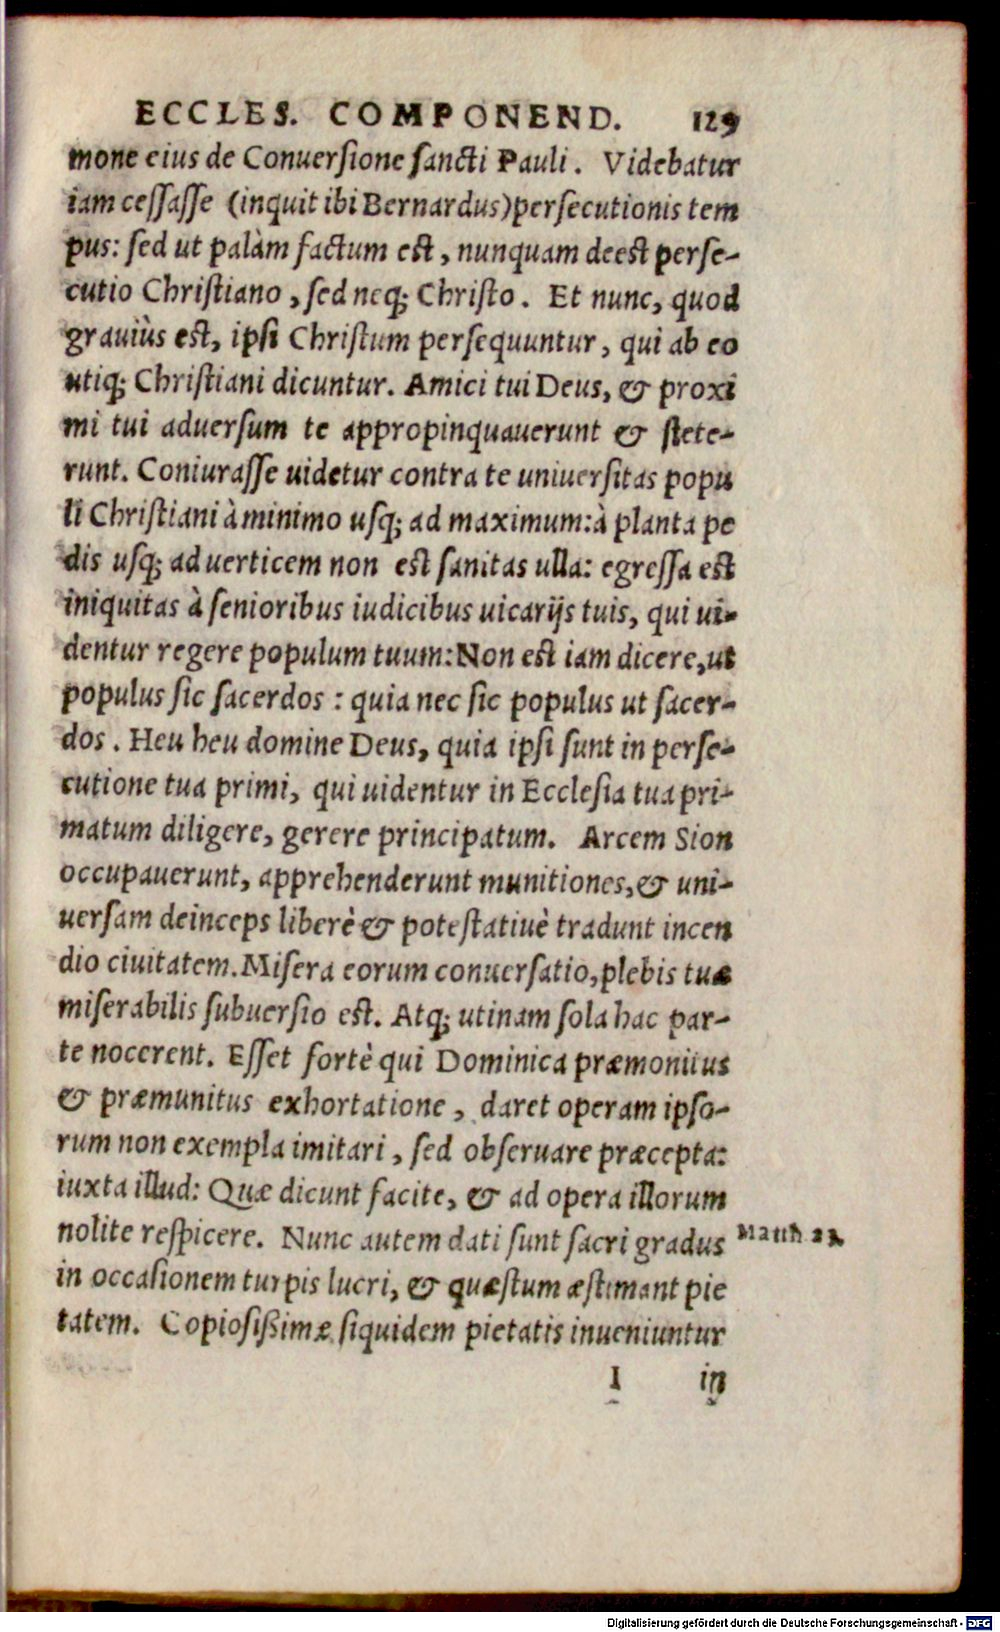 ECCLES. COMPONEND. 129
mone eius de Conuersione sancti Pauli. Videbatur
iam cessasse (inquit ibi Bernardus) persecutionis tem
pus: sed ut palàm factum est, nunquam deest perse-
cutio Christiano, sed neq; Christo. Et nunc, quod
grauiùs est, ipsi Christum persequuntur, qui ab eo
utiq; Christiani dicuntur. Amici tui Deus, & proxi
mi tui aduersum te appropinquauerunt & stete-
runt. Coniurasse uidetur contra te uniuersitas popu
li Christiani à minimo usq; ad maximum: à planta pe
dis usq; ad uerticem non est sanitas ulla: egressa est
iniquitas à senioribus iudicibus uicarijs tuis, qui ui-
dentur regere populum tuum: Non est iam dicere, ut
populus sic sacerdos: quia nec sic populus ut sacer-
dos. Heu heu domine Deus, quia ipsi sunt in perse-
cutione tua primi, qui uidentur in Ecclesia tua pri-
matum diligere, gerere principatum. Arcem Sion
occupauerunt, apprehenderunt munitiones, & uni-
uersam deinceps liberè & potestatiuè tradunt incen
dio ciuitatem. Misera eorum conuersatio, plebis tuæ
miserabilis subuersio est. Atq; utinam sola hac par-
te nocerent. Esset fortè qui Dominica præmonitus
& præmunitus exhortatione, daret operam ipso-
rum non exempla imitari, sed obseruare præcepta:
iuxta illud: Quæ dicunt facite, & ad opera illorum
nolite respicere. Nunc autem dati sunt sacri gradus Matth 23.
in occasionem turpis lucri, & quæstum æstimant pie
tatem. Copiosißimæ siquidem pietatis inueniuntur
I in
Digitalisierung gefördert durch die Deutsche Forschungsgemeinschaft - DFG